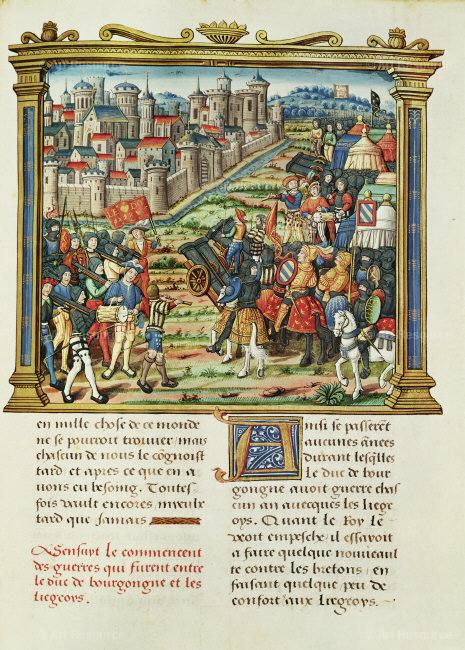 en mille chose de ce monde
ne se pourroit trouver mais
chascun de nous le cognoist
tard et apres ce que en a-
vons eu besoing. Toutes-
fois vault encores mieulx
tard que jamais
Sensuyt le commencement
des guerres qui furent entre
le duc de bourgongne et les
liegeoys.
Ainsi se passerēt
aucunes ānees
durant lesq̄lles
le duc de bour
gongne avoit guerre chas
cun an avecques les liege
oys. Quant le Roy le
veoit empesche, il essayoit
a faire quelque nouveaul
te contre les bretons, en
faisant quelque peu de
confort aux liegeoys.